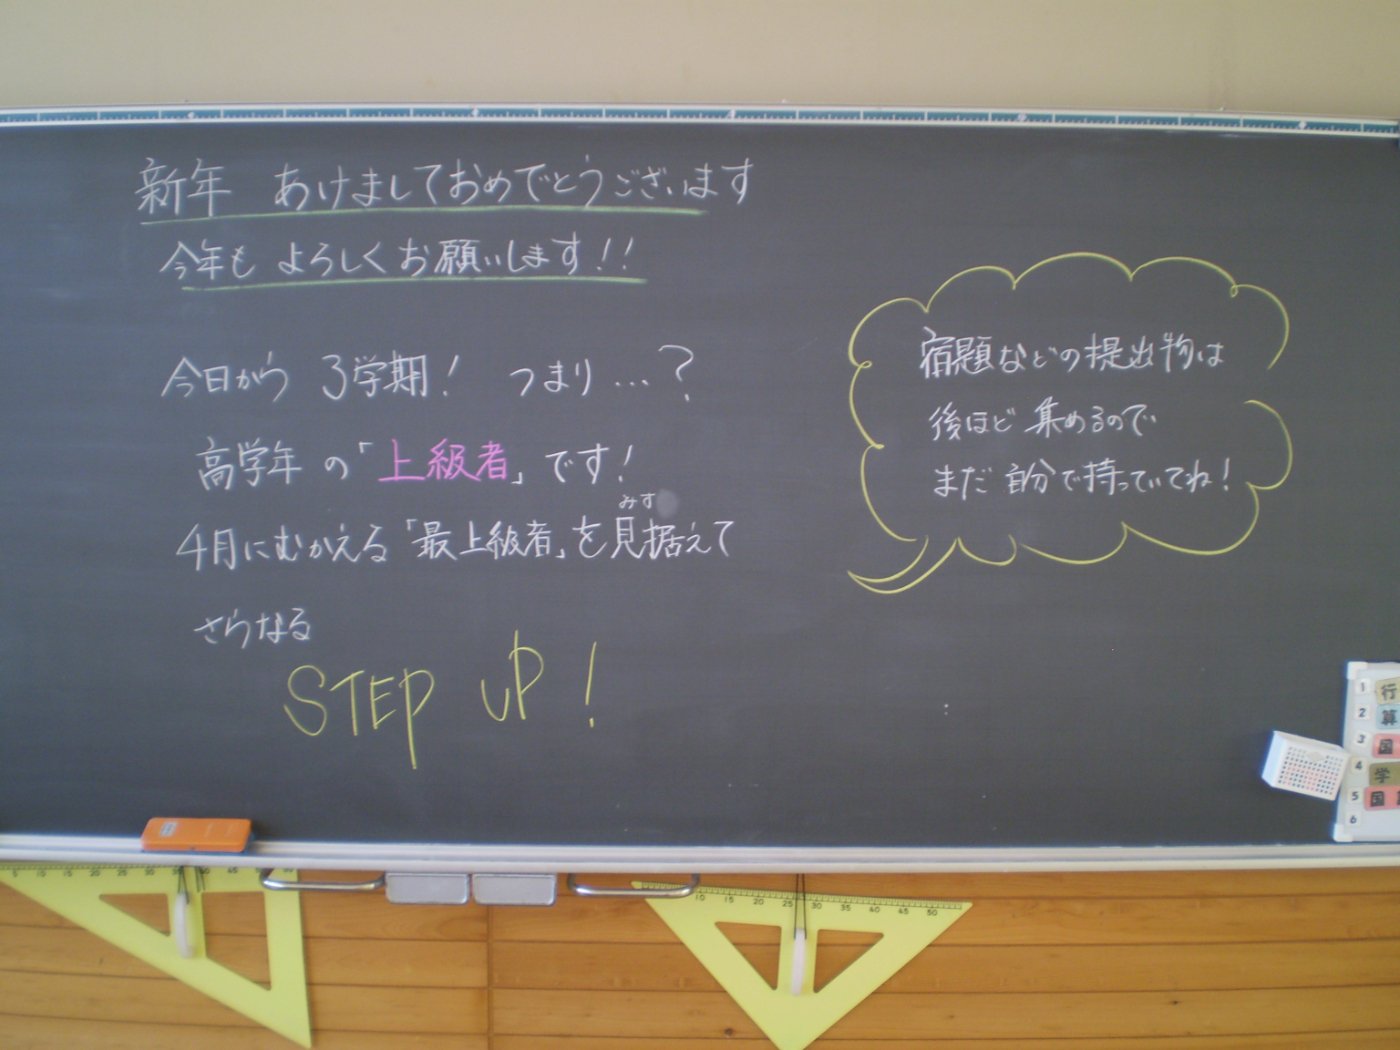 新年 あけましておめでとうございます
今年も よろしくお願いします!!
今日から 3学期! つまり…?
高学年の「上級者」です!
みす
4月にむかえる「最上級者」を見据えて
さらなる
STEP UP!
宿題などの提出物は
後ほど 集めるので
まだ 自分で持っていてね!
1 行
2 算
3 国
4 学
5 国
6
5 10 15 20 25 30 35 40 45 50
10 15 20 25 30 35 40 45 50